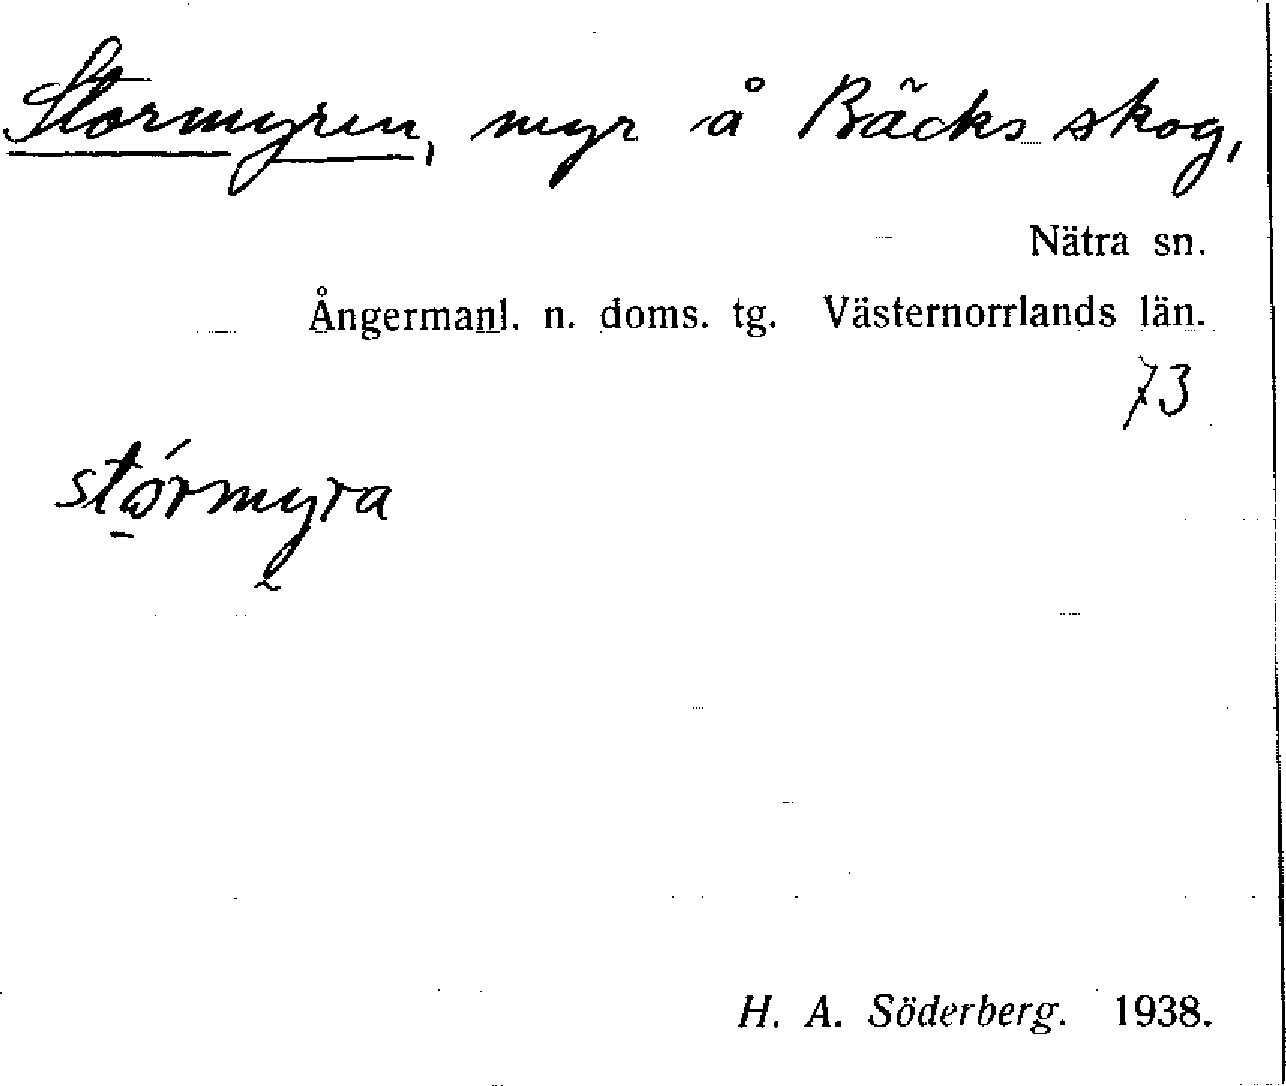 Stormyren, myr å Bäcks skog,
Nätra sn.
Ångermanl. n. doms. tg. Västernorrlands län.
73
stórmyra
H. A. Söderberg. 1938.